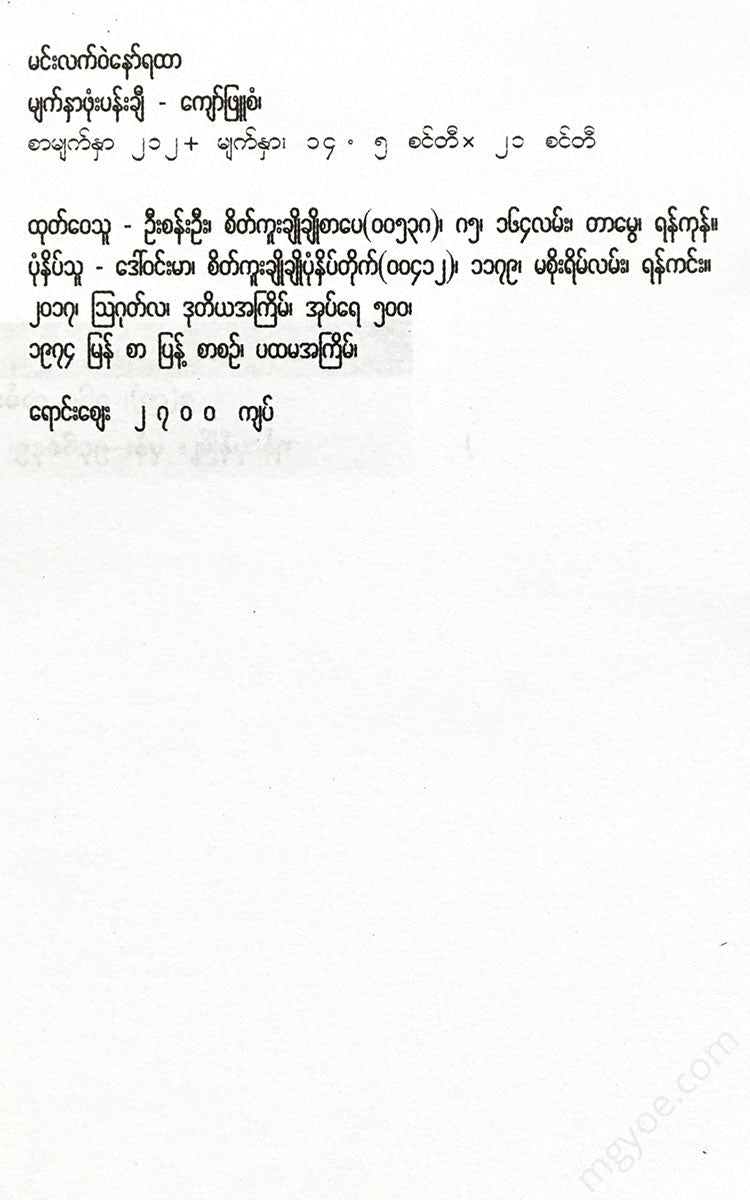 မင်းလက်ဝဲနော်ရထာ
မျက်နှာဖုံးပန်းချီ - ကျော်ဖြူစံ၊
စာမျက်နှာ ၂၁၂+ မျက်နှာ၊ ၁၄ · ၅ စင်တီ× ၂၁ စင်တီ
ထုတ်ဝေသူ - ဦးစန်းဦး၊ စိတ်ကူးချိုချိုစာပေ(၀၀၅၃၈)၊ ဂ၅၊ ၁၆၄လမ်း၊ တာမွေ၊ ရန်ကုန်။
ပုံနှိပ်သူ - ဒေါ်ဝင်းမာ၊ စိတ်ကူးချိုချိုပုံနှိပ်တိုက်(၀၀၄၁၂)၊ ၁၁၇၉၊ မစိုးရိမ်လမ်း၊ ရန်ကင်း။
၂၀၁၇၊ ဩဂုတ်လ၊ ဒုတိယအကြိမ်၊ အုပ်ရေ ၅၀၀၊
၁၉၇၄ မြန် စာ ပြန့် စာစဉ်၊ ပထမအကြိမ်၊
ရောင်းဈေး ၂ ၇ ၀ ၀ ကျပ်
mgyoe.com